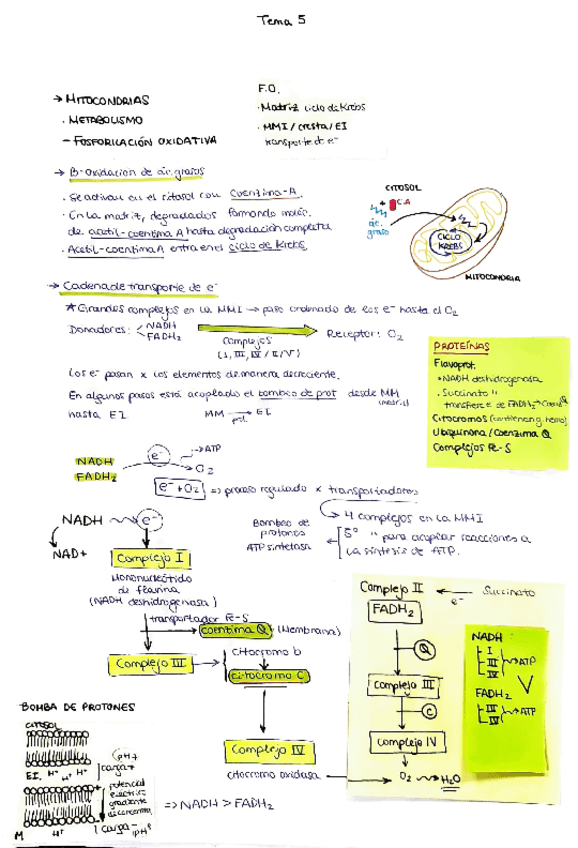 Tema 5
→ MITOCONDRIAS
· METABOLISMO
- FOSFORILACIÓN OXIDATIVA
F.O.
· Matriz ciclo de Krebs
· MMI / cresta / EI
transporte de e⁻
→ B-oxidación de ác. grasos
· Se activan en el citosol con Coenzima-A.
· En la matriz, degradados formando moléc.
de acetil-coentima A hasta degradación completa
· Acetil-coentima A entra en el ciclo de Krebs.
CITOSOL
+ C.A
ác.
graso
CICLO
KREBS
MITOCONDRIA
→ Cadena de transporte de e⁻
* Grandes complejos en la MMI → paso ordenado de los e⁻ hasta el O₂
Donadores: NADH
FADH₂
complejos
(I, III, IV / II / V)
Receptor: O₂
Los e⁻ pasan x los elementos de manera decreciente.
En algunos pasos está acoplado el bombeo de prot desde MM
(matriz)
hasta EI
MM → EI
prot.
PROTEÍNAS
Flavoprot.
· NADH deshidrogenasa
· Succinato "
transfiere de FADH₂→CoenzQ
Citocromos (contienen g. hemo)
Ubiquinona / Coenzima Q
Complejos Fe-S
NADH
FADH₂
e⁻
→ATP
O₂
e⁻ + O₂ => proceso regulado x transportadores
4 complejos en la MMI
5º " para acoplar reacciones a
la síntesis de ATP.
Bombeo de
protones
ATP sintetasa
NADH e⁻
NAD+
Complejo I
Mononucleótido
de flavina
(NADH deshidrogenasa)
transportador Fe-S
coentima Q (Membrana)
Complejo III → citocromo b
citocromo C
Complejo IV
citocromo oxidasa
Complejo II ← Succinato
e⁻
FADH₂
Q
complejo III
C
complejo IV
O₂ → H₂O
NADH
I
III
IV
→ATP
FADH₂
III
IV
→ATP
BOMBA DE PROTONES
CITOSOL
EI. H⁺ H⁺ H⁺
pH+
carga+
potencial
eléctrico
gradiente
M H⁺
carga-
=> NADH > FADH₂